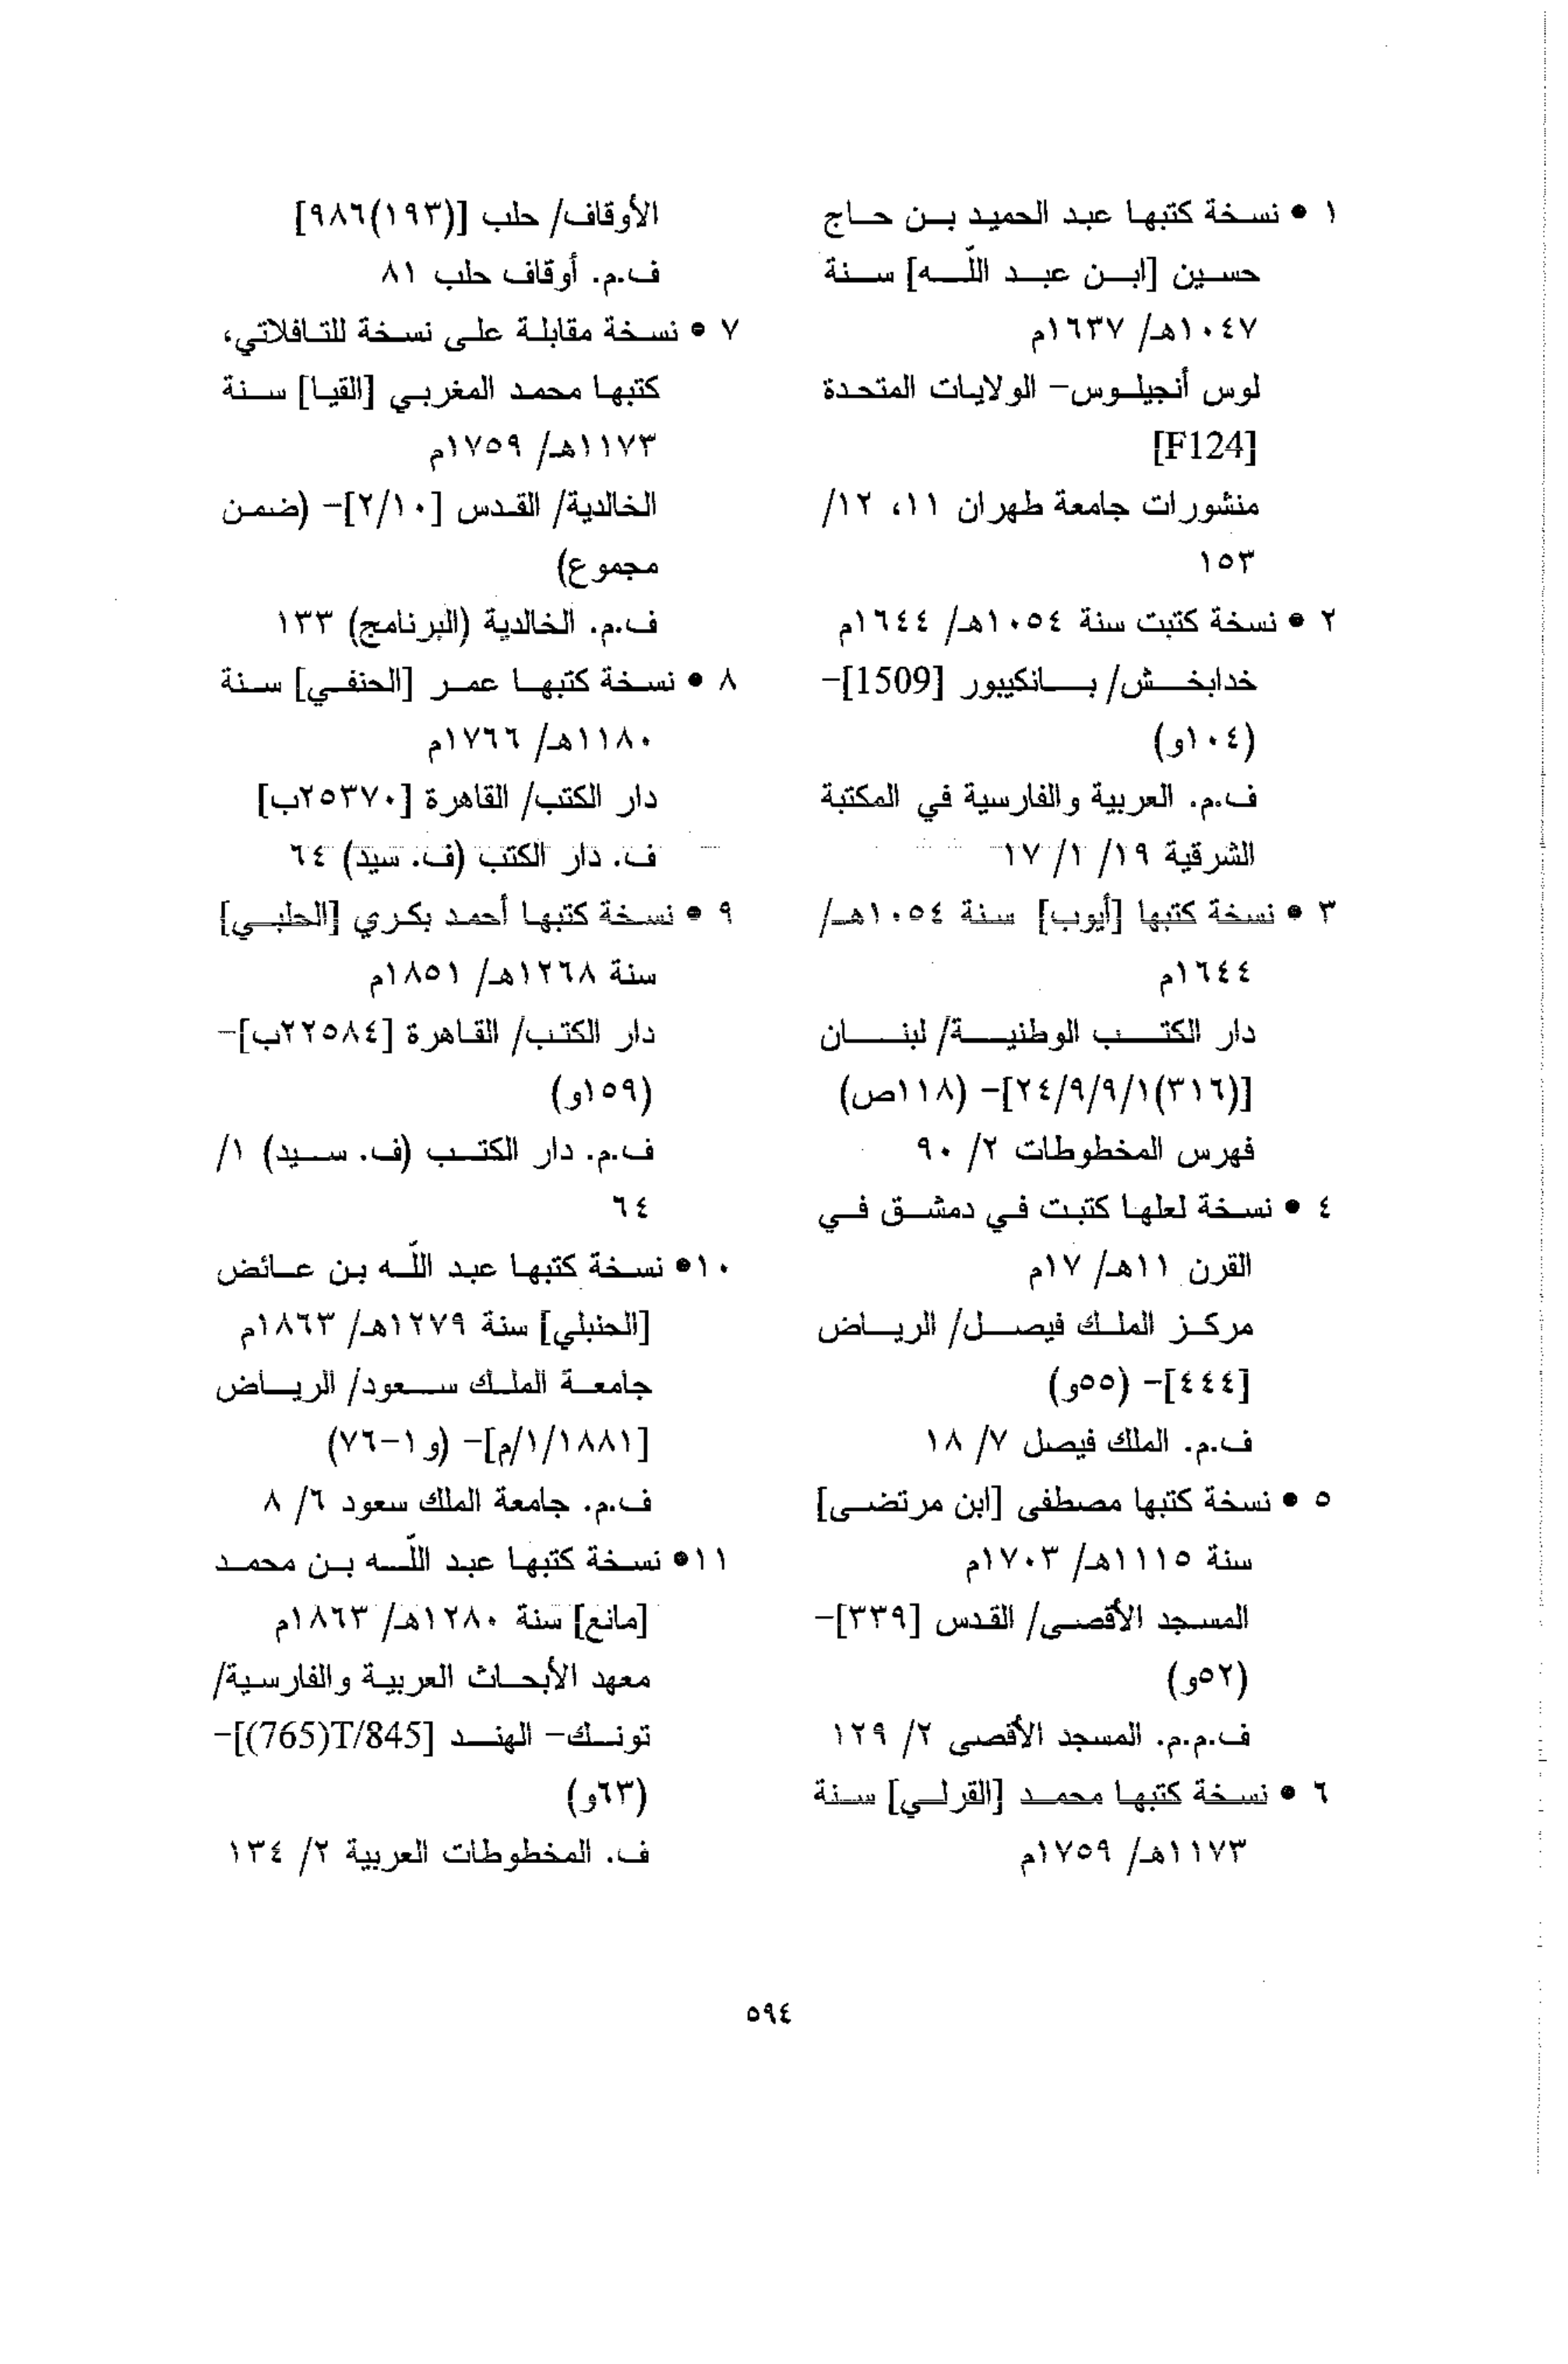 ١ • نسخة كتبها عبد الحميد بن حاج
حسين [ابن عبد اللّه] سنة
١٠٤٧هـ/ ١٦٣٧م
لوس أنجيلوس- الولايات المتحدة
[F124]
منشورات جامعة طهران ١١، ١٢/
١٥٣
٢ • نسخة كتبت سنة ١٠٥٤هـ/ ١٦٤٤م
خدابخش/ بانكيبور [1509]-
(١٠٤و)
ف.م. العربية والفارسية في المكتبة
الشرقية ١٩/ ١/ ١٧
٣ • نسخة كتبها [أيوب] سنة ١٠٥٤هـ/
١٦٤٤م
دار الكتب الوطنية/ لبنان
[(٣١٦)٢٤/٩/٩/١]- (١١٨ص)
فهرس المخطوطات ٢/ ٩٠
٤ • نسخة لعلها كتبت في دمشق في
القرن ١١هـ/ ١٧م
مركز الملك فيصل/ الرياض
[٤٤٤]- (٥٥و)
ف.م. الملك فيصل ٧/ ١٨
٥ • نسخة كتبها مصطفى [ابن مرتضى]
سنة ١١١٥هـ/ ١٧٠٣م
المسجد الأقصى/ القدس [٣٣٩]-
(٥٢و)
ف.م.م. المسجد الأقصى ٢/ ١٢٩
٦ • نسخة كتبها محمد [القرلي] سنة
١١٧٣هـ/ ١٧٥٩م
الأوقاف/ حلب [(١٩٣)٩٨٦]
ف.م. أوقاف حلب ٨١
٧ • نسخة مقابلة على نسخة للتافلاتي،
كتبها محمد المغربي [القيا] سنة
١١٧٣هـ/ ١٧٥٩م
الخالدية/ القدس [٢/١٠]- (ضمن
مجموع)
ف.م. الخالدية (البرنامج) ١٣٣
٨ • نسخة كتبها عمر [الحنفي] سنة
١١٨٠هـ/ ١٧٦٦م
دار الكتب/ القاهرة [٢٥٣٧٠ب]
ف. دار الكتب (ف. سيد) ٦٤
٩ • نسخة كتبها أحمد بكري [الحلبي]
سنة ١٢٦٨هـ/ ١٨٥١م
دار الكتب/ القاهرة [٢٢٥٨٤ب]-
(١٥٩و)
ف.م. دار الكتب (ف. سيد) ١/
٦٤
١٠• نسخة كتبها عبد اللّه بن عائض
[الحنبلي] سنة ١٢٧٩هـ/ ١٨٦٣م
جامعة الملك سعود/ الرياض
[١٨٨١/١/م]- (و١-٧٦)
ف.م. جامعة الملك سعود ٦/ ٨
١١• نسخة كتبها عبد اللّه بن محمد
[مانع] سنة ١٢٨٠هـ/ ١٨٦٣م
معهد الأبحاث العربية والفارسية/
تونك- الهند [T/845(765)]-
(٦٣و)
ف. المخطوطات العربية ٢/ ١٣٤
٥٩٤